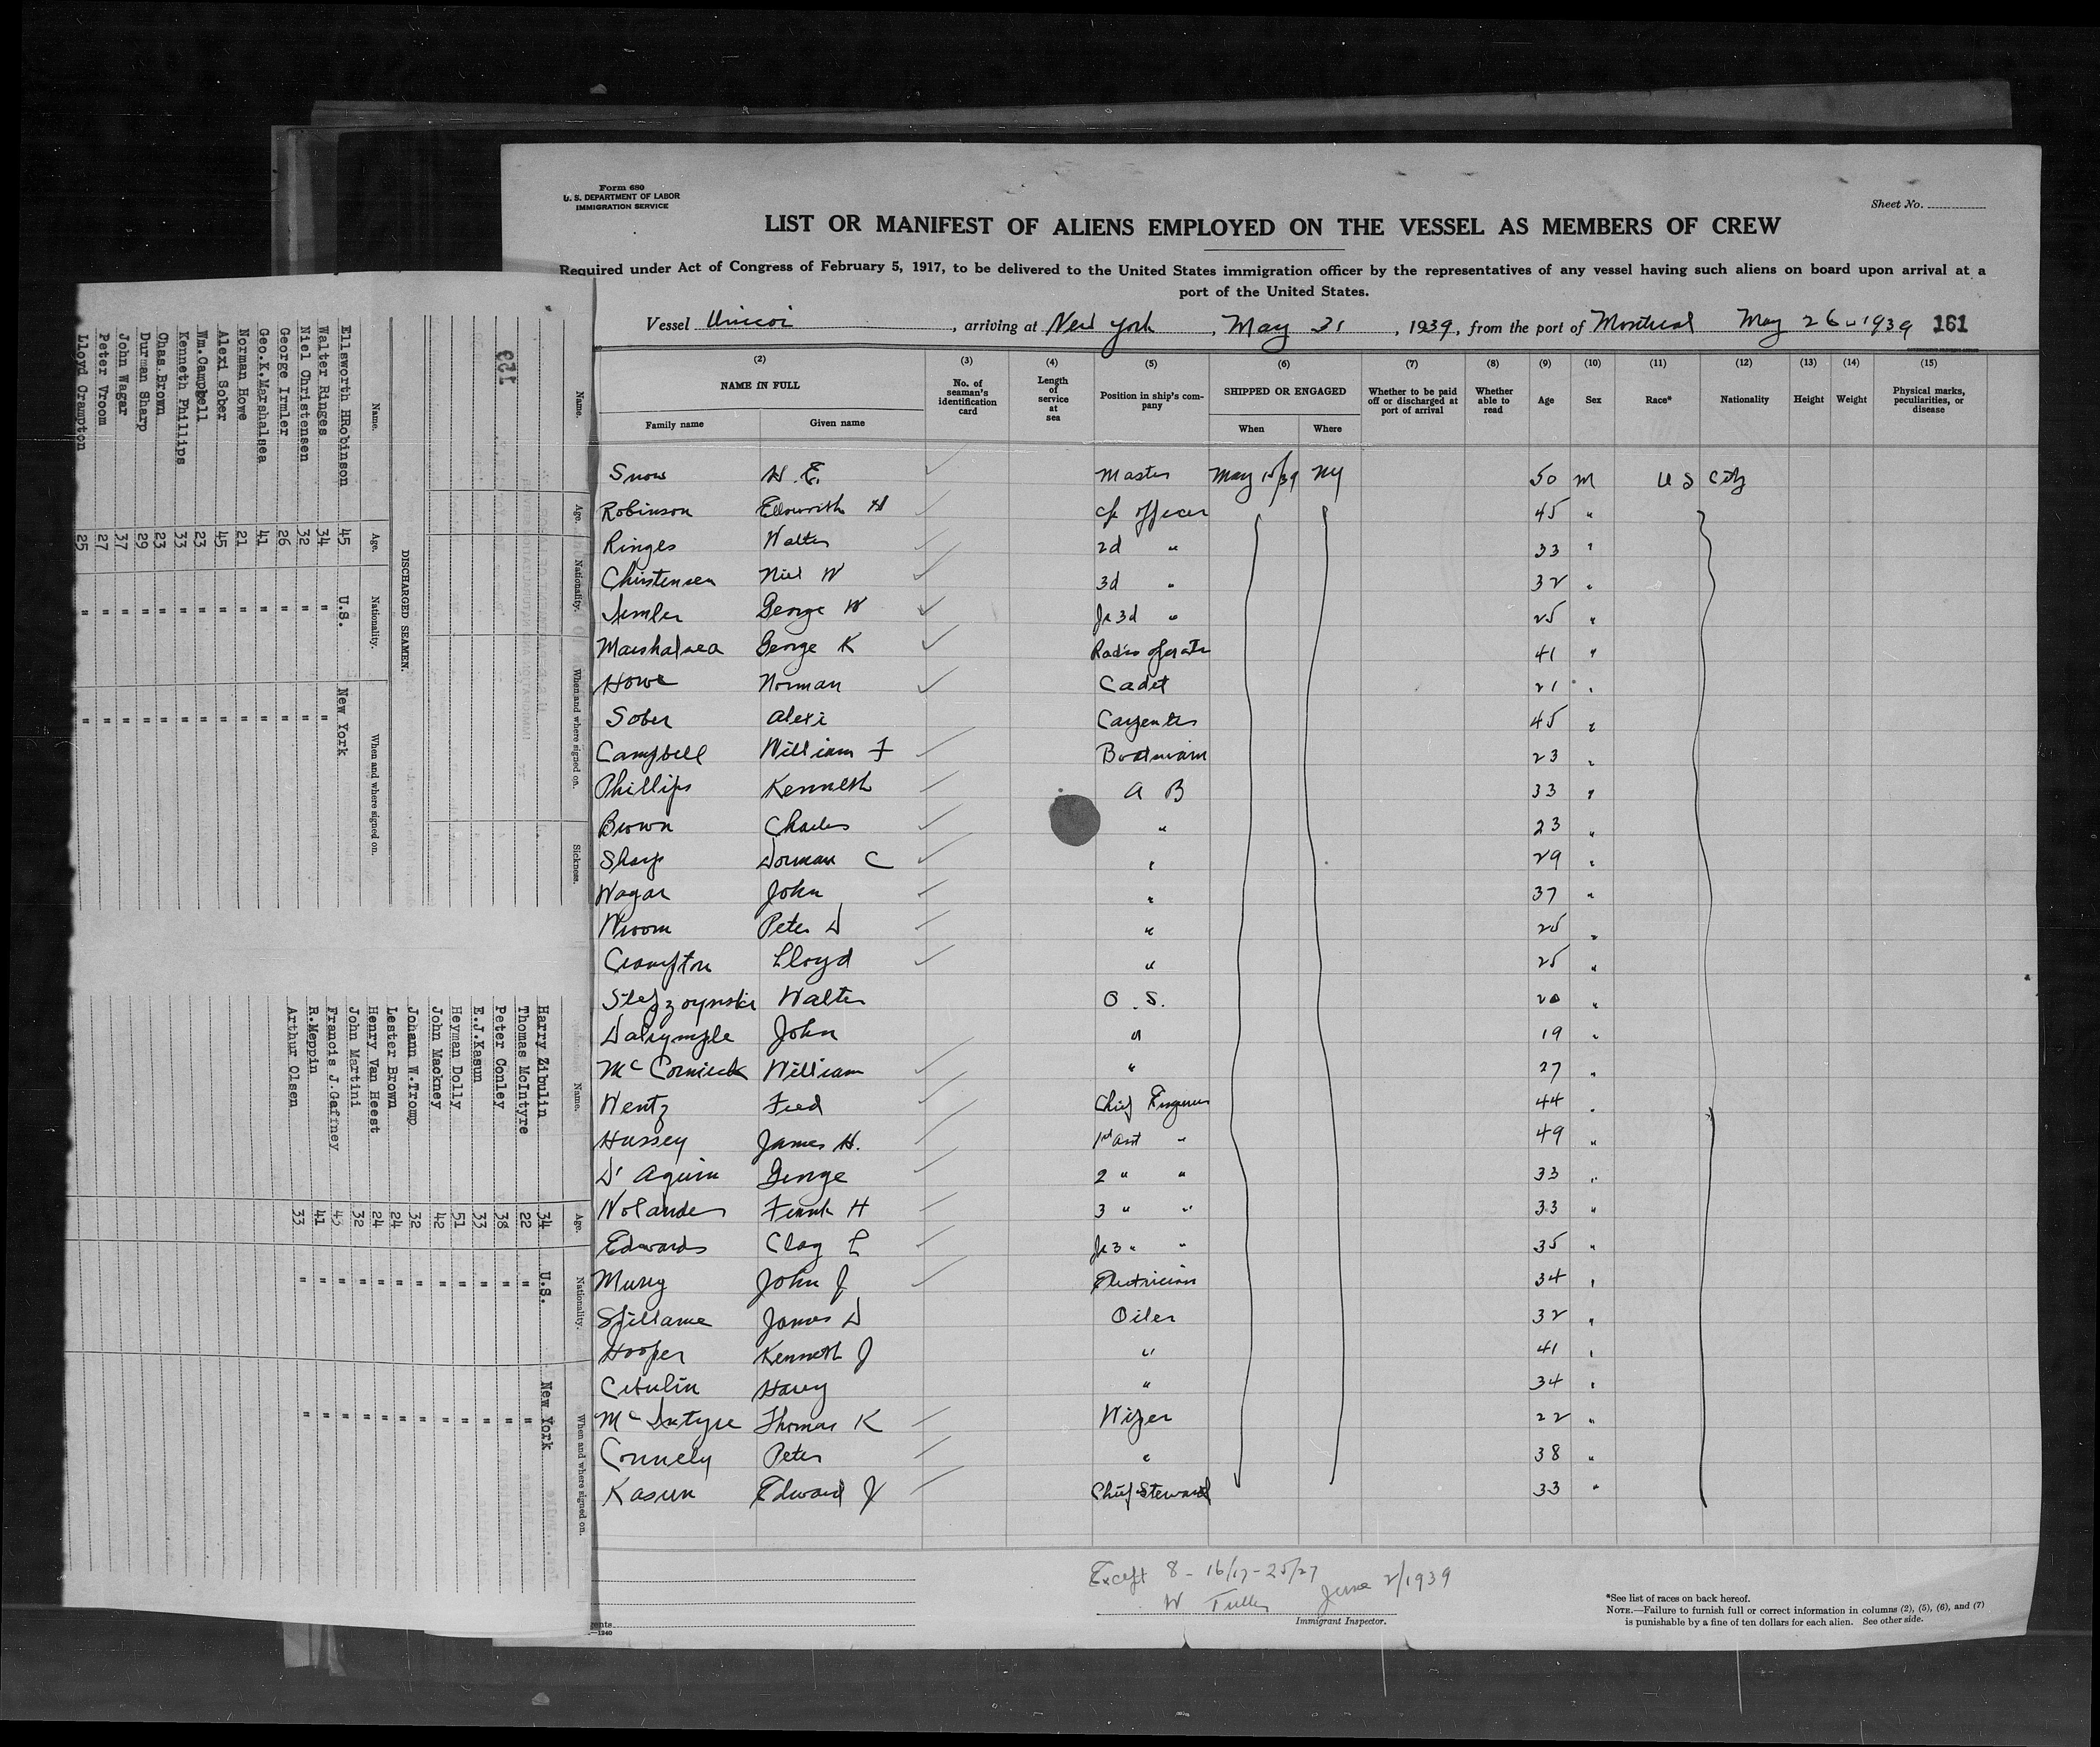 Form 680
U. S. DEPARTMENT OF LABOR
IMMIGRATION SERVICE
Sheet No.
LIST OR MANIFEST OF ALIENS EMPLOYED ON THE VESSEL AS MEMBERS OF CREW
Required under Act of Congress of February 5, 1917, to be delivered to the United States immigration officer by the representatives of any vessel having such aliens on board upon arrival at a
port of the United States.
Vessel Unicoi, arriving at New York, May 31, 1939, from the port of Montreal May 26 - 1939 161
(2) (3) (4) (5) (6) (7) (8) (9) (10) (11) (12) (13) (14) (15)
NAME IN FULL No. of seaman's identification card Length of service at sea Position in ship's company SHIPPED OR ENGAGED Whether to be paid off or discharged at port of arrival Whether able to read Age Sex Race* Nationality Height Weight Physical marks, peculiarities, or disease
Family name Given name When Where
Snow H. E. Master May 15/39 NY 50 M U S City
Robinson Ellsworth H Ch officer 45 "
Ringes Walter 2d " 33 "
Christensen Niel W 3d " 32 "
Irmler George W Jr 3d " 25 "
Marshalsea George K Radio operator 41 "
Howe Norman Cadet 21 "
Sober Alexi Carpenter 45 "
Campbell William F Boatswain 23 "
Phillips Kenneth A B 33 "
Brown Charles " 23 "
Sharp Dorman C " 29 "
Wagar John " 37 "
Vroom Peter D " 25 "
Crampton Lloyd " 25 "
Walter O. S. 20 "
Dalrymple John " 19 "
McCormick William " 27 "
Wentz Fred Chief Engineer 44 "
Hussey James H. 1st Asst " 49 "
D'Aquin George 2 " " 33 "
Nolander Frank H 3 " " 33 "
Edwards Clay L Jr 3 " " 35 "
John J Electrician 34 "
Spillane James D Oiler 32 "
Hooper Kenneth J " 41 "
Cibulin Harry " 34 "
McIntyre Thomas K Wiper 22 "
Connely Peter " 38 "
Kasun Edward J Chief Steward 33 "
Except 8 - 16/17 - 25/27
W Fuller June 2/1939
Immigrant Inspector.
*See list of races on back hereof.
NOTE.—Failure to furnish full or correct information in columns (2), (5), (6), and (7)
is punishable by a fine of ten dollars for each alien. See other side.
133
Name. Age. Nationality. When and where signed on. Sickness.
DISCHARGED SEAMEN.
Name. Age. Nationality. When and where signed on.
Ellsworth HRobinson 45 U.S. New York
Walter Ringes 34 " "
Niel Christensen 32 " "
George Irmler 26 " "
Geo.K.Marshalsea 41 " "
Norman Howe 21 " "
Alexi Sober 45 " "
Wm.Campbell 23 " "
Kenneth Phillips 33 " "
Chas.Brown 23 " "
Durman Sharp 29 " "
John Wagar 37 " "
Peter Vroom 27 " "
Lloyd Crampton 25 " "
Name. Age. Nationality. When and where signed on.
Harry Zibulin 34 U.S. New York
Thomas McIntyre 22 " "
Peter Conley 38 " "
E.J.Kasun 33 " "
Heyman Dolly 51 " "
John Mackney 42 " "
Johann W.Tromp 32 " "
Lester Brown 24 " "
Henry Van Heest 24 " "
John Martini 32 " "
Francis J.Gaffney 43 " "
R.Meppin 41 " "
Arthur Olsen 33 " "